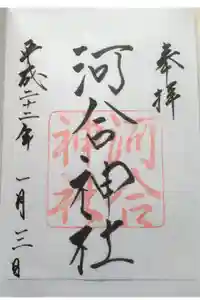 奉拝
河合神社
河合神社
平成二十二年一月三日